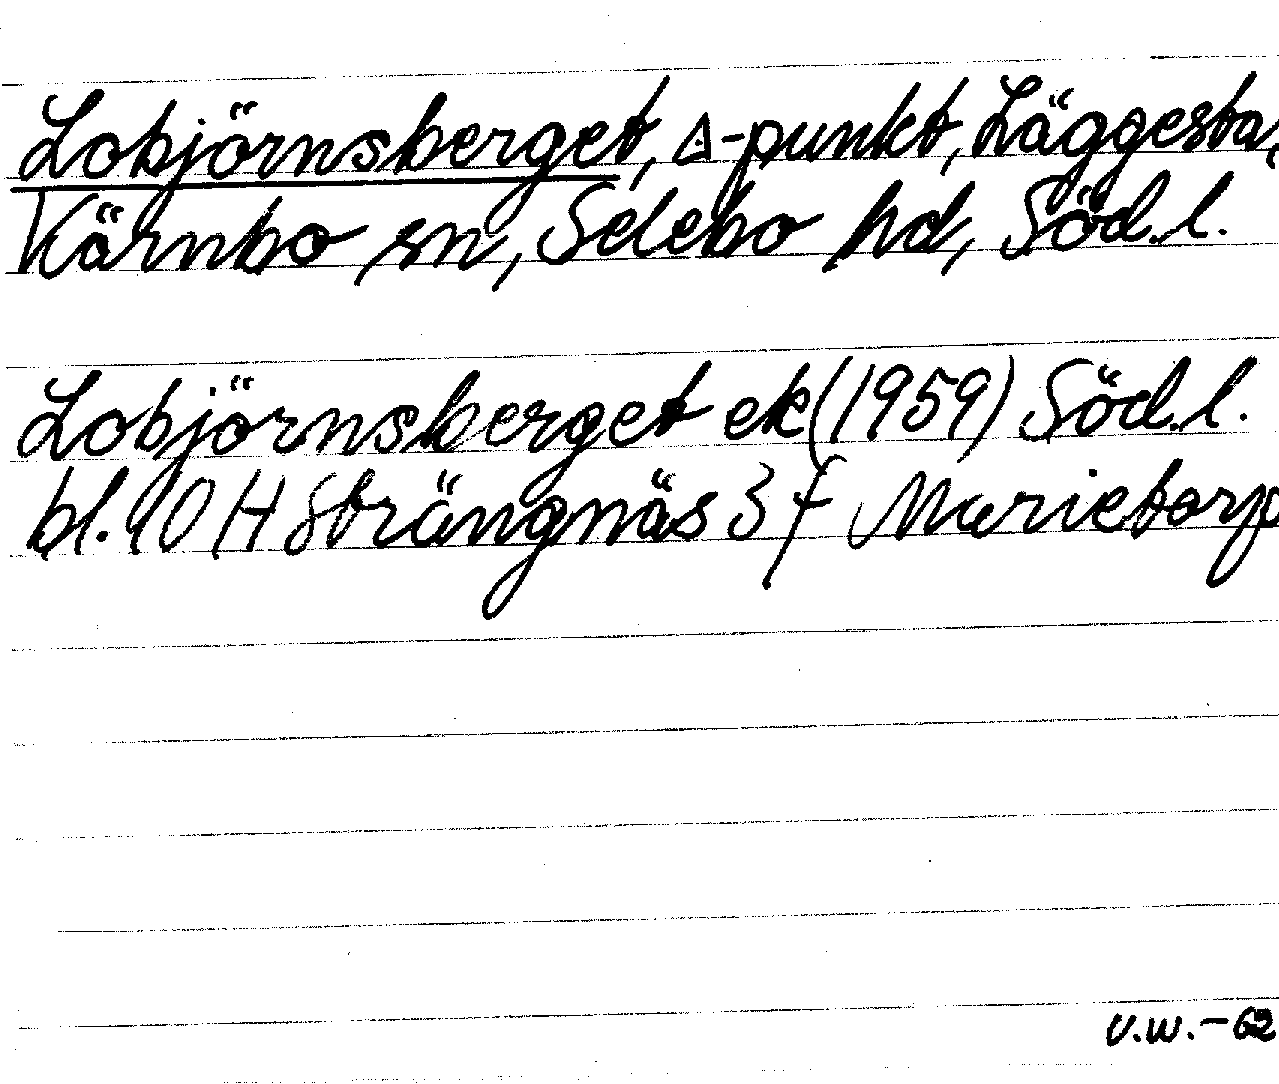 Lobjörnsberget, ∆-punkt, Läggesta,
Kärnbo sn, Selebo hd, Söd.l.
Lobjörnsberget ek (1959) Söd.l.
bl. 10 H Strängnäs 3 f Marietorp
V.W.-62